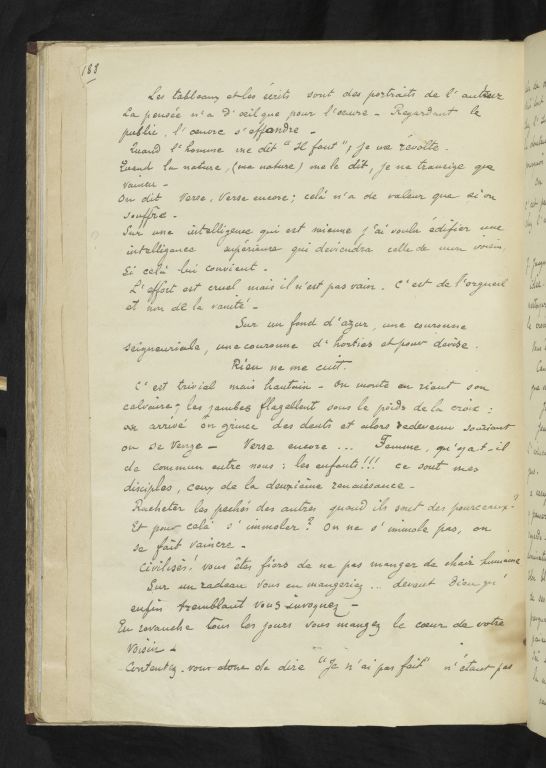 188
Les tableaux et les écrits sont des portraits de l'auteur
La pensée n'a d'œil que pour l'œuvre - Regardant le
public, l'œuvre s'effondre -
Quand l'homme me dit "Il faut"; je me révolte
Quand la nature, (ma nature) me le dit, je ne transige que
vaincu -
On dit Verse, Verse encore; celà n'a de valeur que si on
souffre -
Sur une intelligence qui est mienne j'ai voulu édifier une
intelligence supérieure qui deviendra celle de mon voisin
Si celà lui convient -
L'effort est cruel mais il n'est pas vain. C'est de l'orgueil
et non de la vanité -
Sur un fond d'azur, une couronne
seigneuriale, une couronne d'horties et pour devise.
Rien ne me cuit.
C'est trivial mais hautain - On monte en riant son
calvaire; les jambes flagellent sous le poids de la croix :
on arrivé on grince des dents et alors redevenu souriant
on se Venge - Verse encore ... Femme, qu'y a-t-il
de commun entre nous : les enfants!!! ce sont mes
disciples, ceux de la deuxième renaissance -
Racheter les pechés des autres quand ils sont des pourceaux?
Et pour celà s'immoler? On ne s'immole pas, on
se fait vaincre -
Civilisés! vous êtes fiers de ne pas manger de chair humaine
Sur un radeau vous en mangeriez ... devant Dieu qu'
enfin tremblant vous invoquez -
En revanche tous les jours vous mangez le cœur de votre
voisin -
Contentez-vous donc de dire "Je n'ai pas fait" n'étant pas